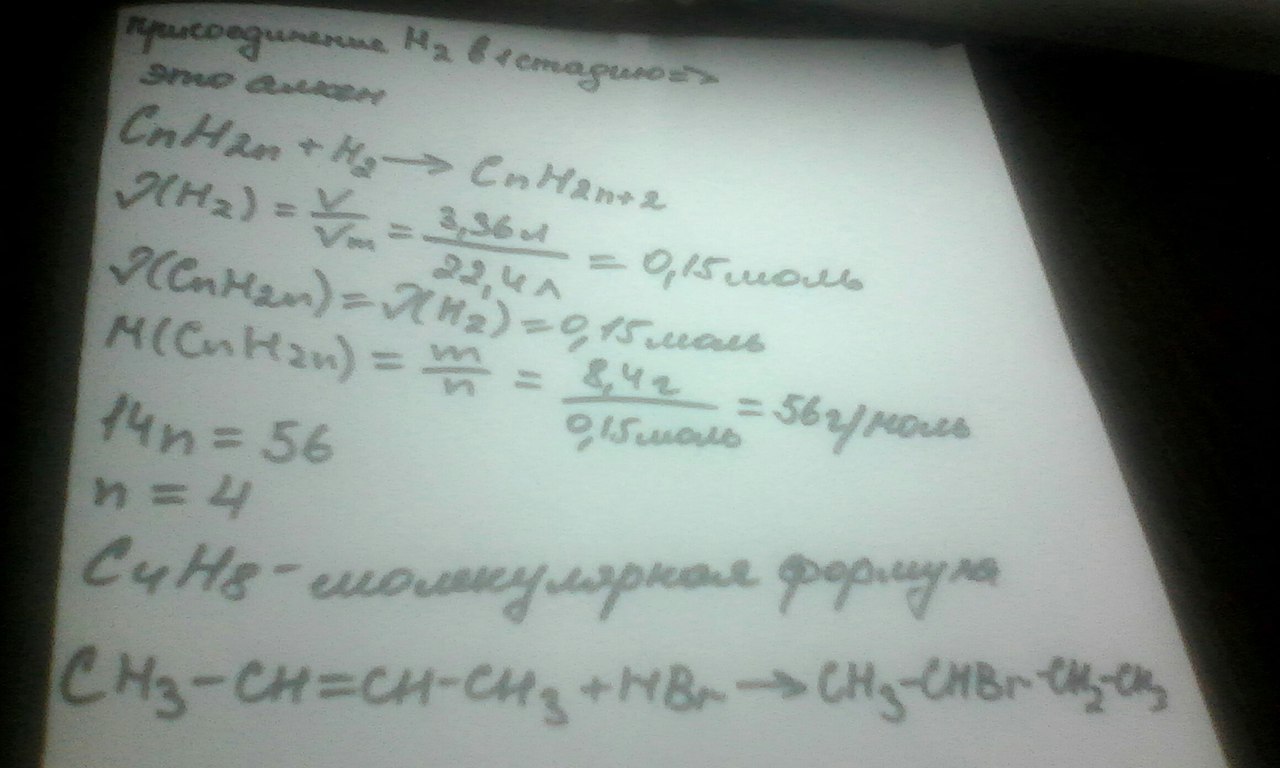 присоединение H2 в 1 стадию=>
это алкен
CnH2n + H2 → CnH2n+2
𝜈(H2) = V/Vm = 3,36л/22,4л = 0,15моль
𝜈(CnH2n) = 𝜈(H2) = 0,15моль
M(CnH2n) = m/n = 8,4г/0,15моль = 56г/моль
14n = 56
n = 4
C4H8 - молекулярная формула
CH3-CH=CH-CH3 + HBr → CH3-CHBr-CH2-CH3